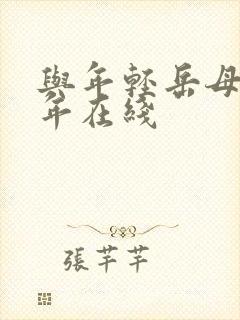 與年輕岳母
年在綫
張芊芊